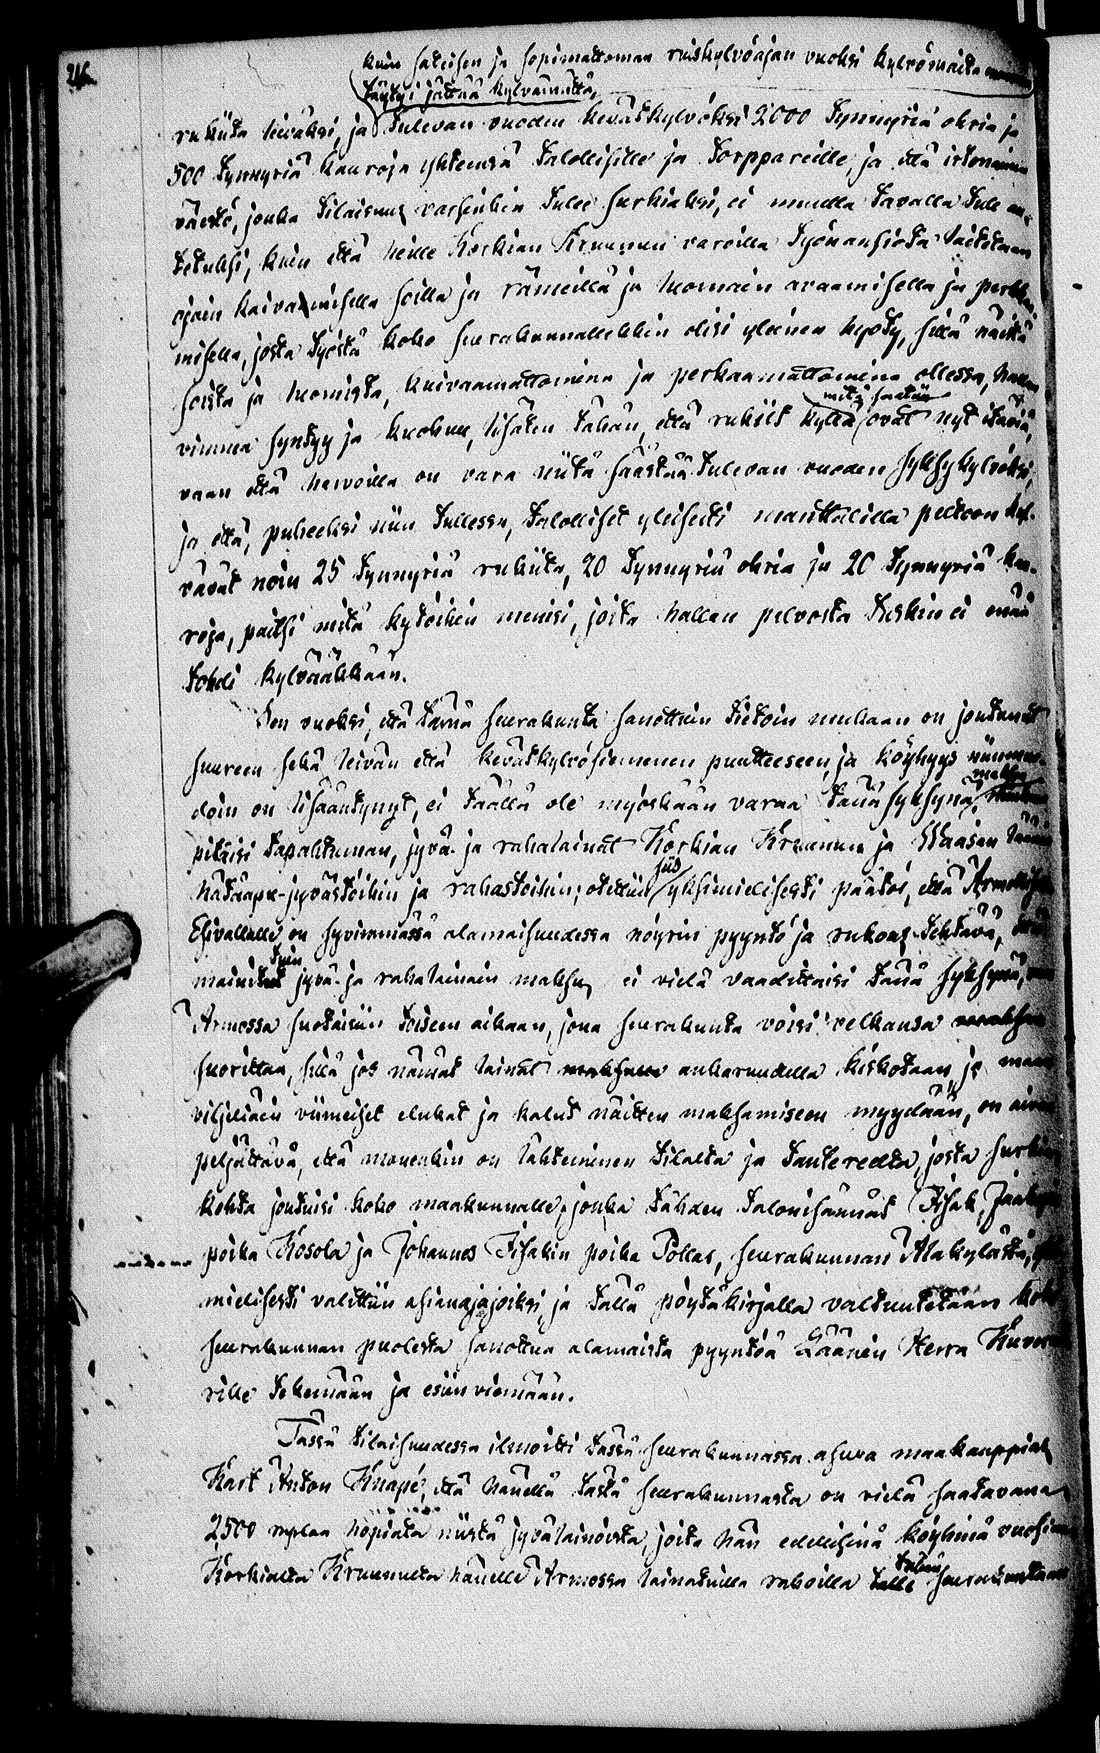 kuin sateisen ja sopimattoman ruiskylvöajan vuoksi kylvömaita
täytyi jättää kylvämättä,
rukiita leiväksi, ja tulevan vuoden kevätkylvöksi 2000 tynnyriä ohria ja
500 tynnyriä kauroja yhteensä talollisille ja torppareille, ja että irtonainen
väestö, jonka tilaisuus varsinkin tulee surkiaksi, ei muulla tavalla tule au-
tetuksi, kuin että heille Korkian Kruunun varoilla työnansiota laitetaan
ojain kaivamisella soilla ja rämeillä ja luomain avaamisella ja perkaa-
misella, josta työstä koko seurakunnallekkin olisi yleinen hyöty, sillä näistä
soista ja luomista, kuivaamattomina ja perkaamattomina ollessa, hallan
vimma syntyy ja kuohuu, lisäten tähän, että rukiit kyllä ovat nyt itäviä,
mitä saatiin
vaan että harvoilla on vara niitä säästää tulevan vuoden syksykylvöksi,
ja että, puheeksi niin tullessa, talolliset yleisesti manttalilla peltoon kyl-
vävät noin 25 tynnyriä rukiita, 20 tynnyriä ohria ja 20 tynnyriä kau-
roja, paitsi mitä kytöihin menisi, joita hallan pelvosta tuskin ei enää
tohdi kylvääkkään.
Sen vuoksi, että tämä seurakunta sanottuin tietoin mukaan on joutunut
suureen sekä leivän että kevätkylvösiemenen puutteeseen, ja köyhyys niinmuo-
doin on lisääntynyt, ei täällä ole myöskään varaa tänä syksynä, maksaa
pitäisi tapahtuman, jyvä- ja rahalainat Korkian Kruunun ja Waasan läänin
hätäapu-jyvästöihin ja rahastoihin; otettiin siis yksimielisesti päätös, että Armollisen
Esivallalle on syvimmässä alamaisuudessa nöyrin pyyntö ja rukous tehtävä, että
mainittuin jyvä- ja rahalainain maksu ei vielä vaadittaisi tänä syksynä, vaan
Armossa suotaisiin toiseen aikaan, jona seurakunta voisi velkansa
suorittaa, sillä jos nämät lainat ankaruudella kiskotaan, ja maan
viljeliäin viimeiset elukat ja kalut näitten maksamiseen myydään, on aivan
peljättävä, että monenkin on lähteminen tilalta ja tantereelta, josta surkia
kohta joutuisi koko maakunnalle, jonka tähden talonisännät Iisak Jaakopin
poika Kosola ja Johannes Iisakin poika Pollas, seurakunnan Alakylästä, yksi
mielisesti valittiin asianajajoiksi, ja tällä pöytäkirjalla valtuutetaan koko
seurakunnan puolesta sanottua alamaista pyyntöä Läänin Herra Kuvernö
rille tekemään ja esiinviemään.
Tässä tilaisuudessa ilmoitti tässä seurakunnassa asuva maakauppias
Karl Anton Knapé, että hänellä tästä seurakunnasta on vielä saatavana
2,500 ruplaa hopiata niistä jyvälainoista, joita hän edellisinä köyhinä vuosina
Korkialta Kruunulta hänelle Armossa lainatuilla rahoilla tälle seurakuntaan